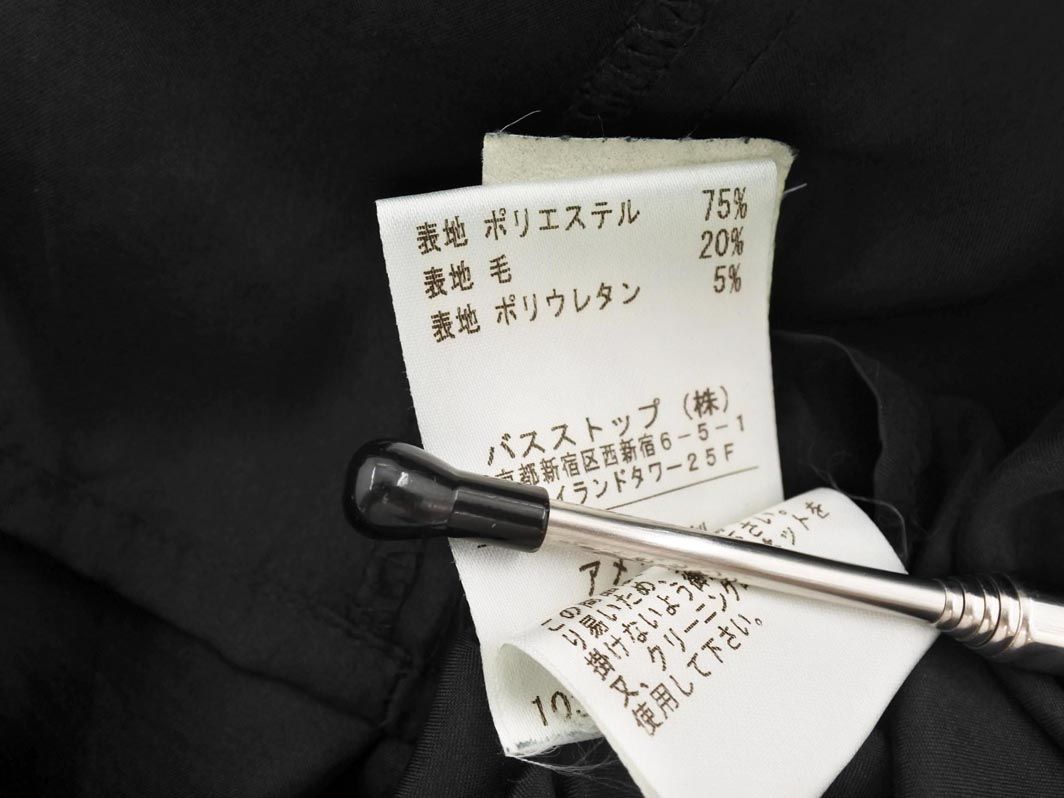 表地 ポリエステル 75%
表地 毛 20%
表地 ポリウレタン 5%
バスストップ (株)
京都新宿区西新宿6-5-1
イランドタワー25F
さい。
ットを
この
り易いため、
掛けないよう御
又、クリーニング
使用して下さい。